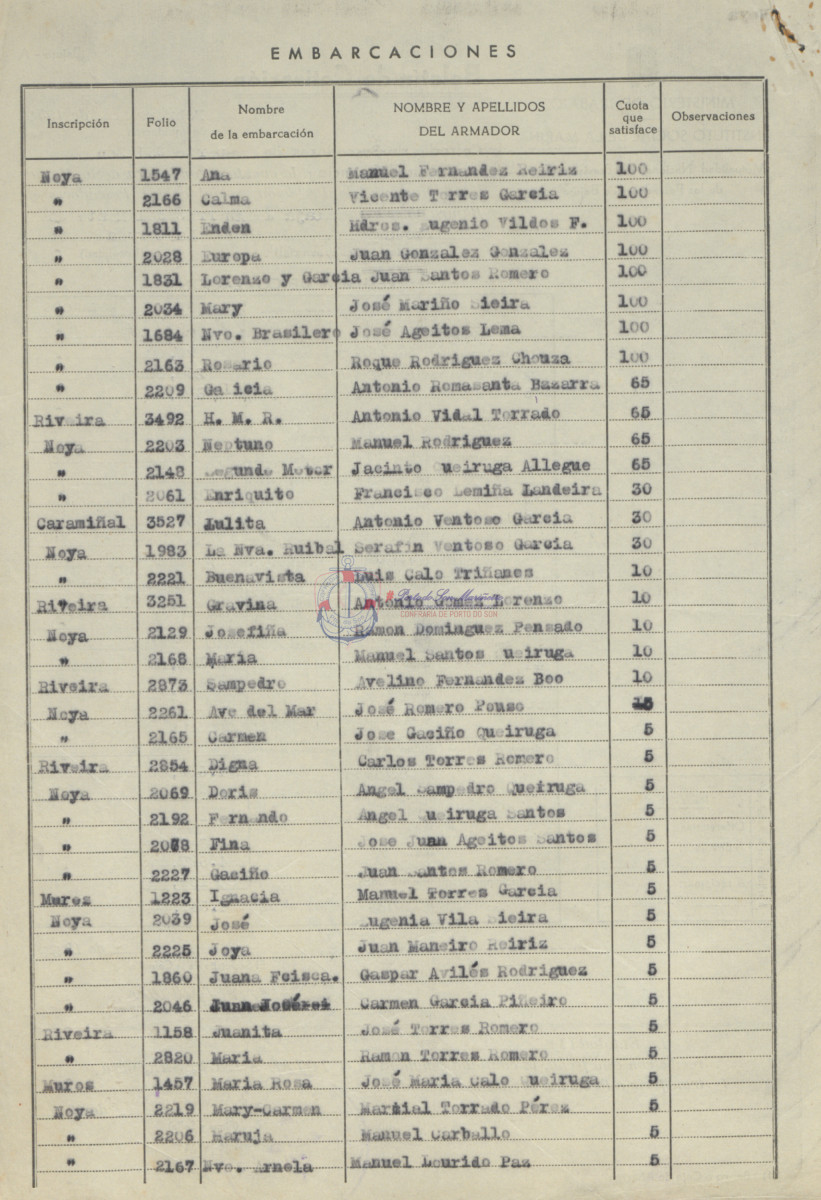 EMBARCACIONES
Inscripción Folio Nombre de la embarcación NOMBRE Y APELLIDOS DEL ARMADOR Cuota que satisface Observaciones
Noya 1547 Ana Manuel Fernandez Reiriz 100
" 2166 Calma Vicente Torres Garcia 100
" 1811 Enden Hdros. Eugenio Vildos F. 100
" 2028 Europa Juan Gonzalez Gonzalez 100
" 1831 Lorenzo y Garcia Juan Santos Romero 100
" 2034 Mary José Mariño Sieira 100
" 1684 Nvo. Brasilero José Ageitos Lema 100
" 2163 Rosario Roque Rodriguez Chouza 100
" 2209 Galicia Antonio Romasanta Bazarra 65
Riveira 3492 H. M. R. Antonio Vidal Torrado 65
Noya 2203 Neptuno Manuel Rodriguez 65
" 2148 Segundo Motor Jacinto Queiruga Allegue 65
" 2061 Enriquito Francisco Lemiña Landeira 30
Caramiñal 3527 Lulita Antonio Ventoso Garcia 30
Noya 1983 La Nva. Ruibal Serafin Ventoso Garcia 30
" 2221 Buenavista Luis Calo Triñanes 10
Riveira 3251 Gravina Antonio Gomez Lorenzo 10
CONFRARIA DE PORTO DO SON
Noya 2129 Josefiña Ramon Dominguez Pensado 10
" 2168 Maria Manuel Santos Queiruga 10
Riveira 2873 Sampedro Avelino Fernandez Boo 10
Noya 2261 Ave del Mar José Romero Pouso
" 2165 Carmen Jose Gaciño Queiruga 5
Riveira 2854 Digna Carlos Torres Romero 5
Noya 2069 Doris Angel Sampedro Queiruga 5
" 2192 Fernando Angel Queiruga Santos 5
" 2078 Fina Jose Juan Ageitos Santos 5
" 2227 Gaciño Juan Santos Romero 5
Muros 1223 Ignacia Manuel Torres Garcia 5
Noya 2039 José Eugenia Vila Sieira 5
" 2225 Joya Juan Maneiro Reiriz 5
" 1860 Juana Fcisca. Gaspar Avilés Rodriguez 5
" 2046 Carmen Garcia Piñeiro 5
Riveira 1158 Juanita José Torres Romero 5
" 2820 Maria Ramon Torres Romero 5
Muros 1457 Maria Rosa José Maria Calo Queiruga 5
Noya 2219 Mary-Carmen Marcial Torrado Pérez 5
" 2206 Maruja Manuel Carballo 5
" 2167 Nvo. Arnela Manuel Lourido Paz 5